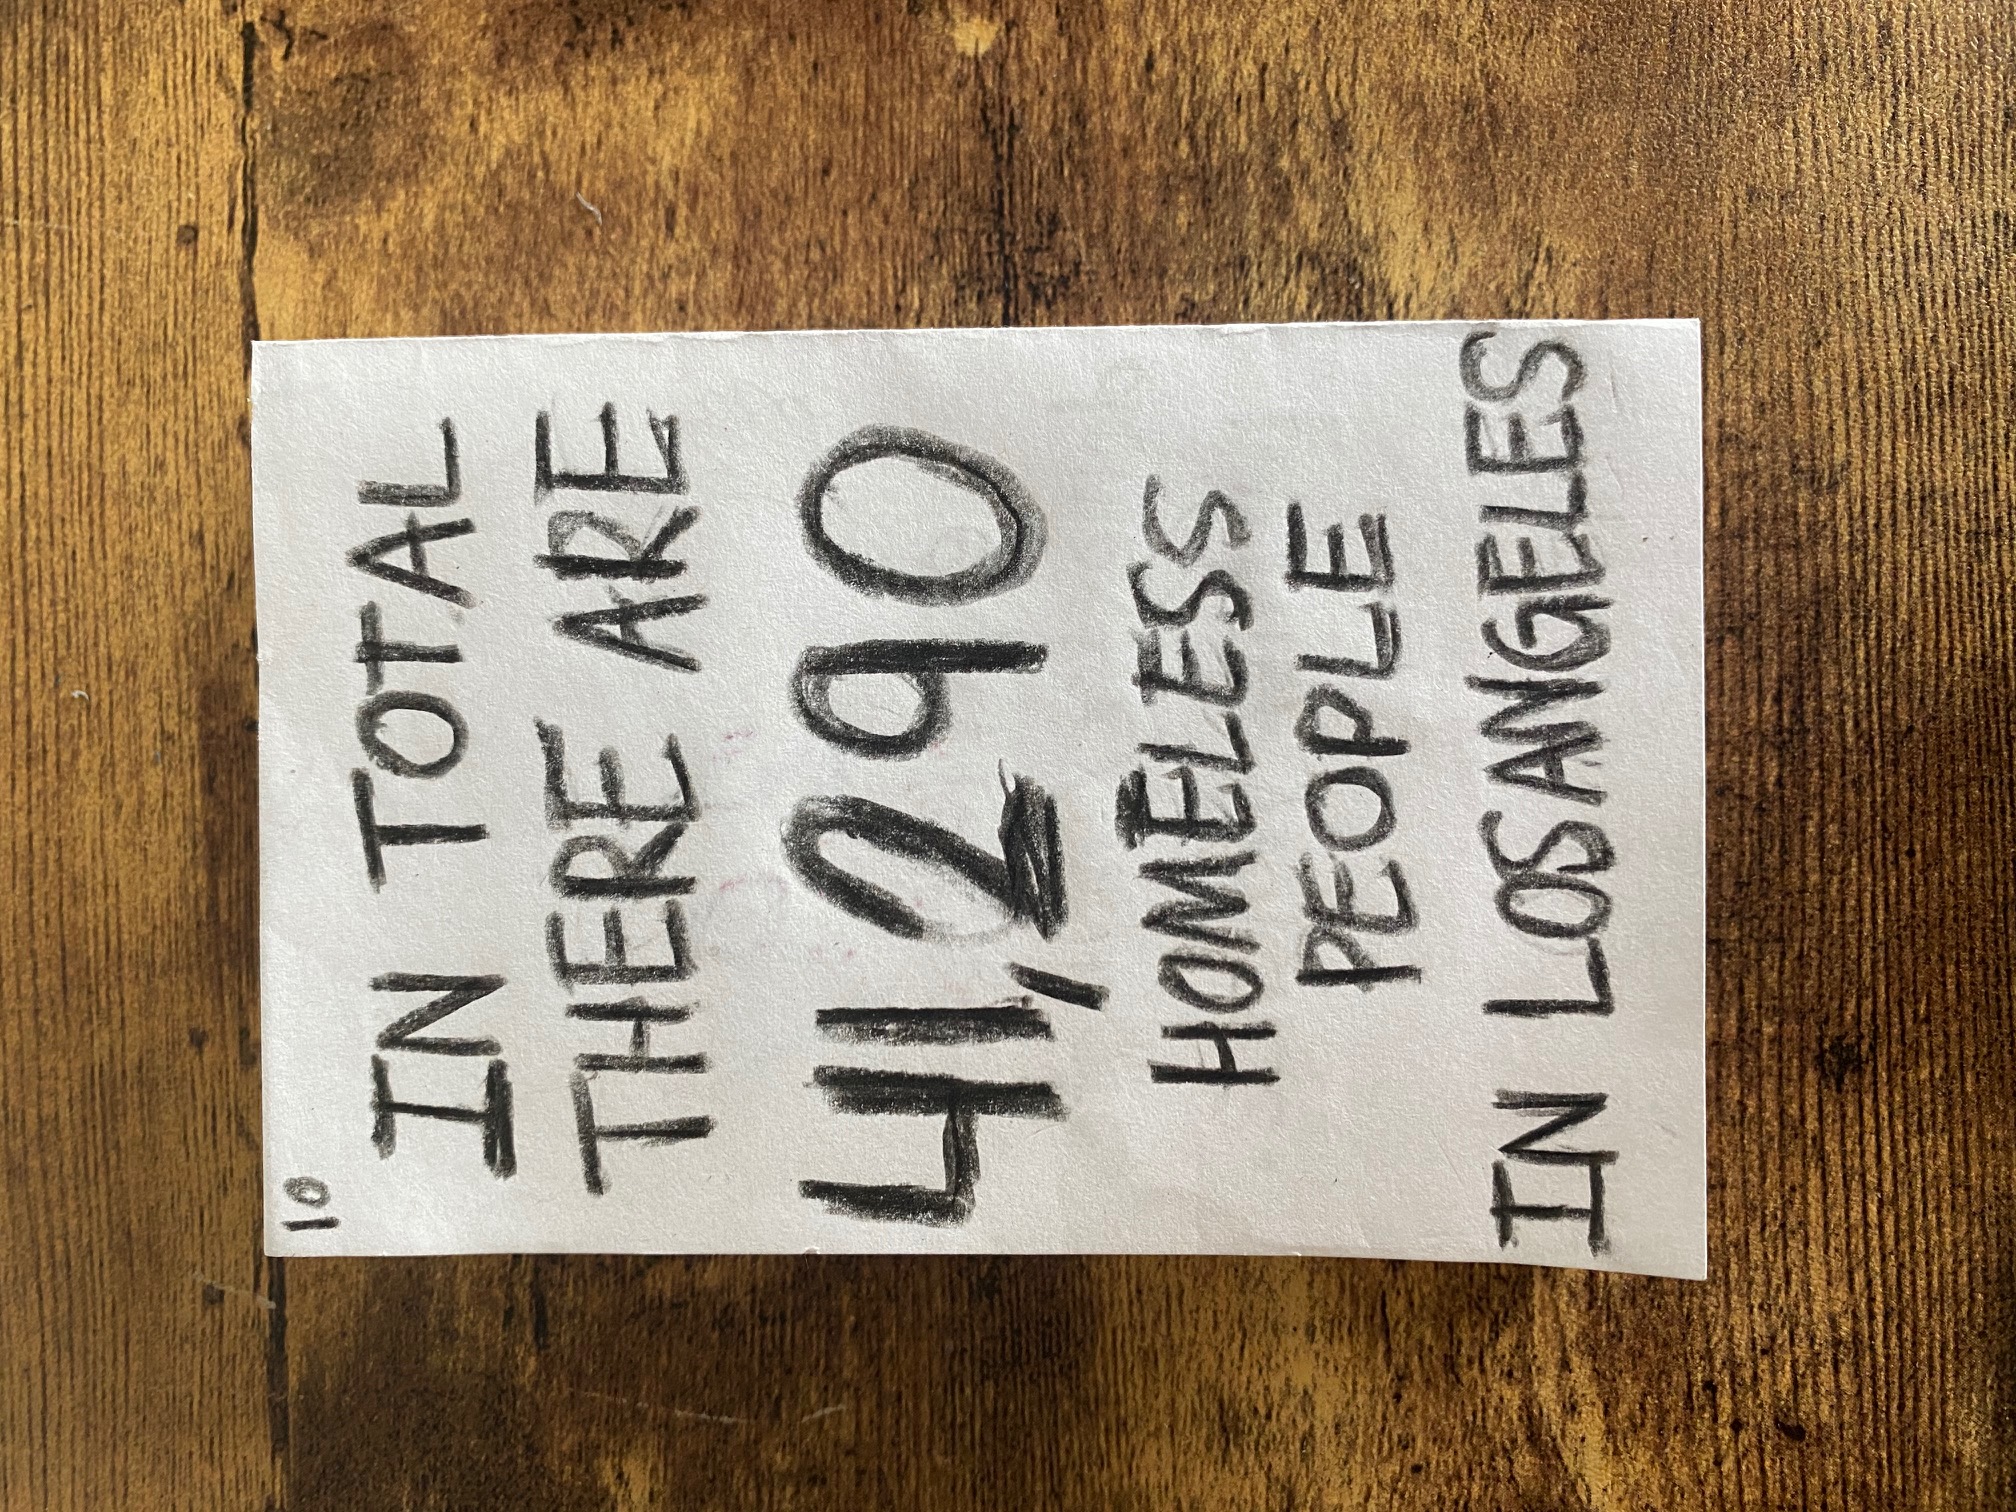 10
IN TOTAL
THERE ARE
41,290
HOMELESS
PEOPLE
IN LOSANGELES